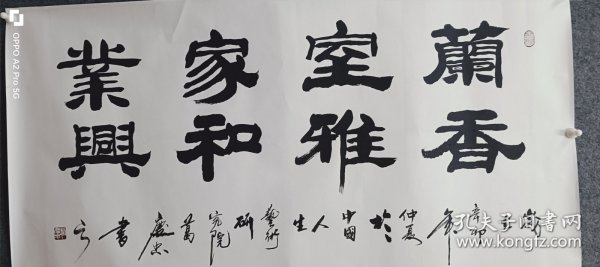 蘭香
室雅
家和
業興
仲夏於中國人生藝術研究院葛慶忠書
OPPO A2 Pro 5G
孔夫子旧书网
www.kongfz.com